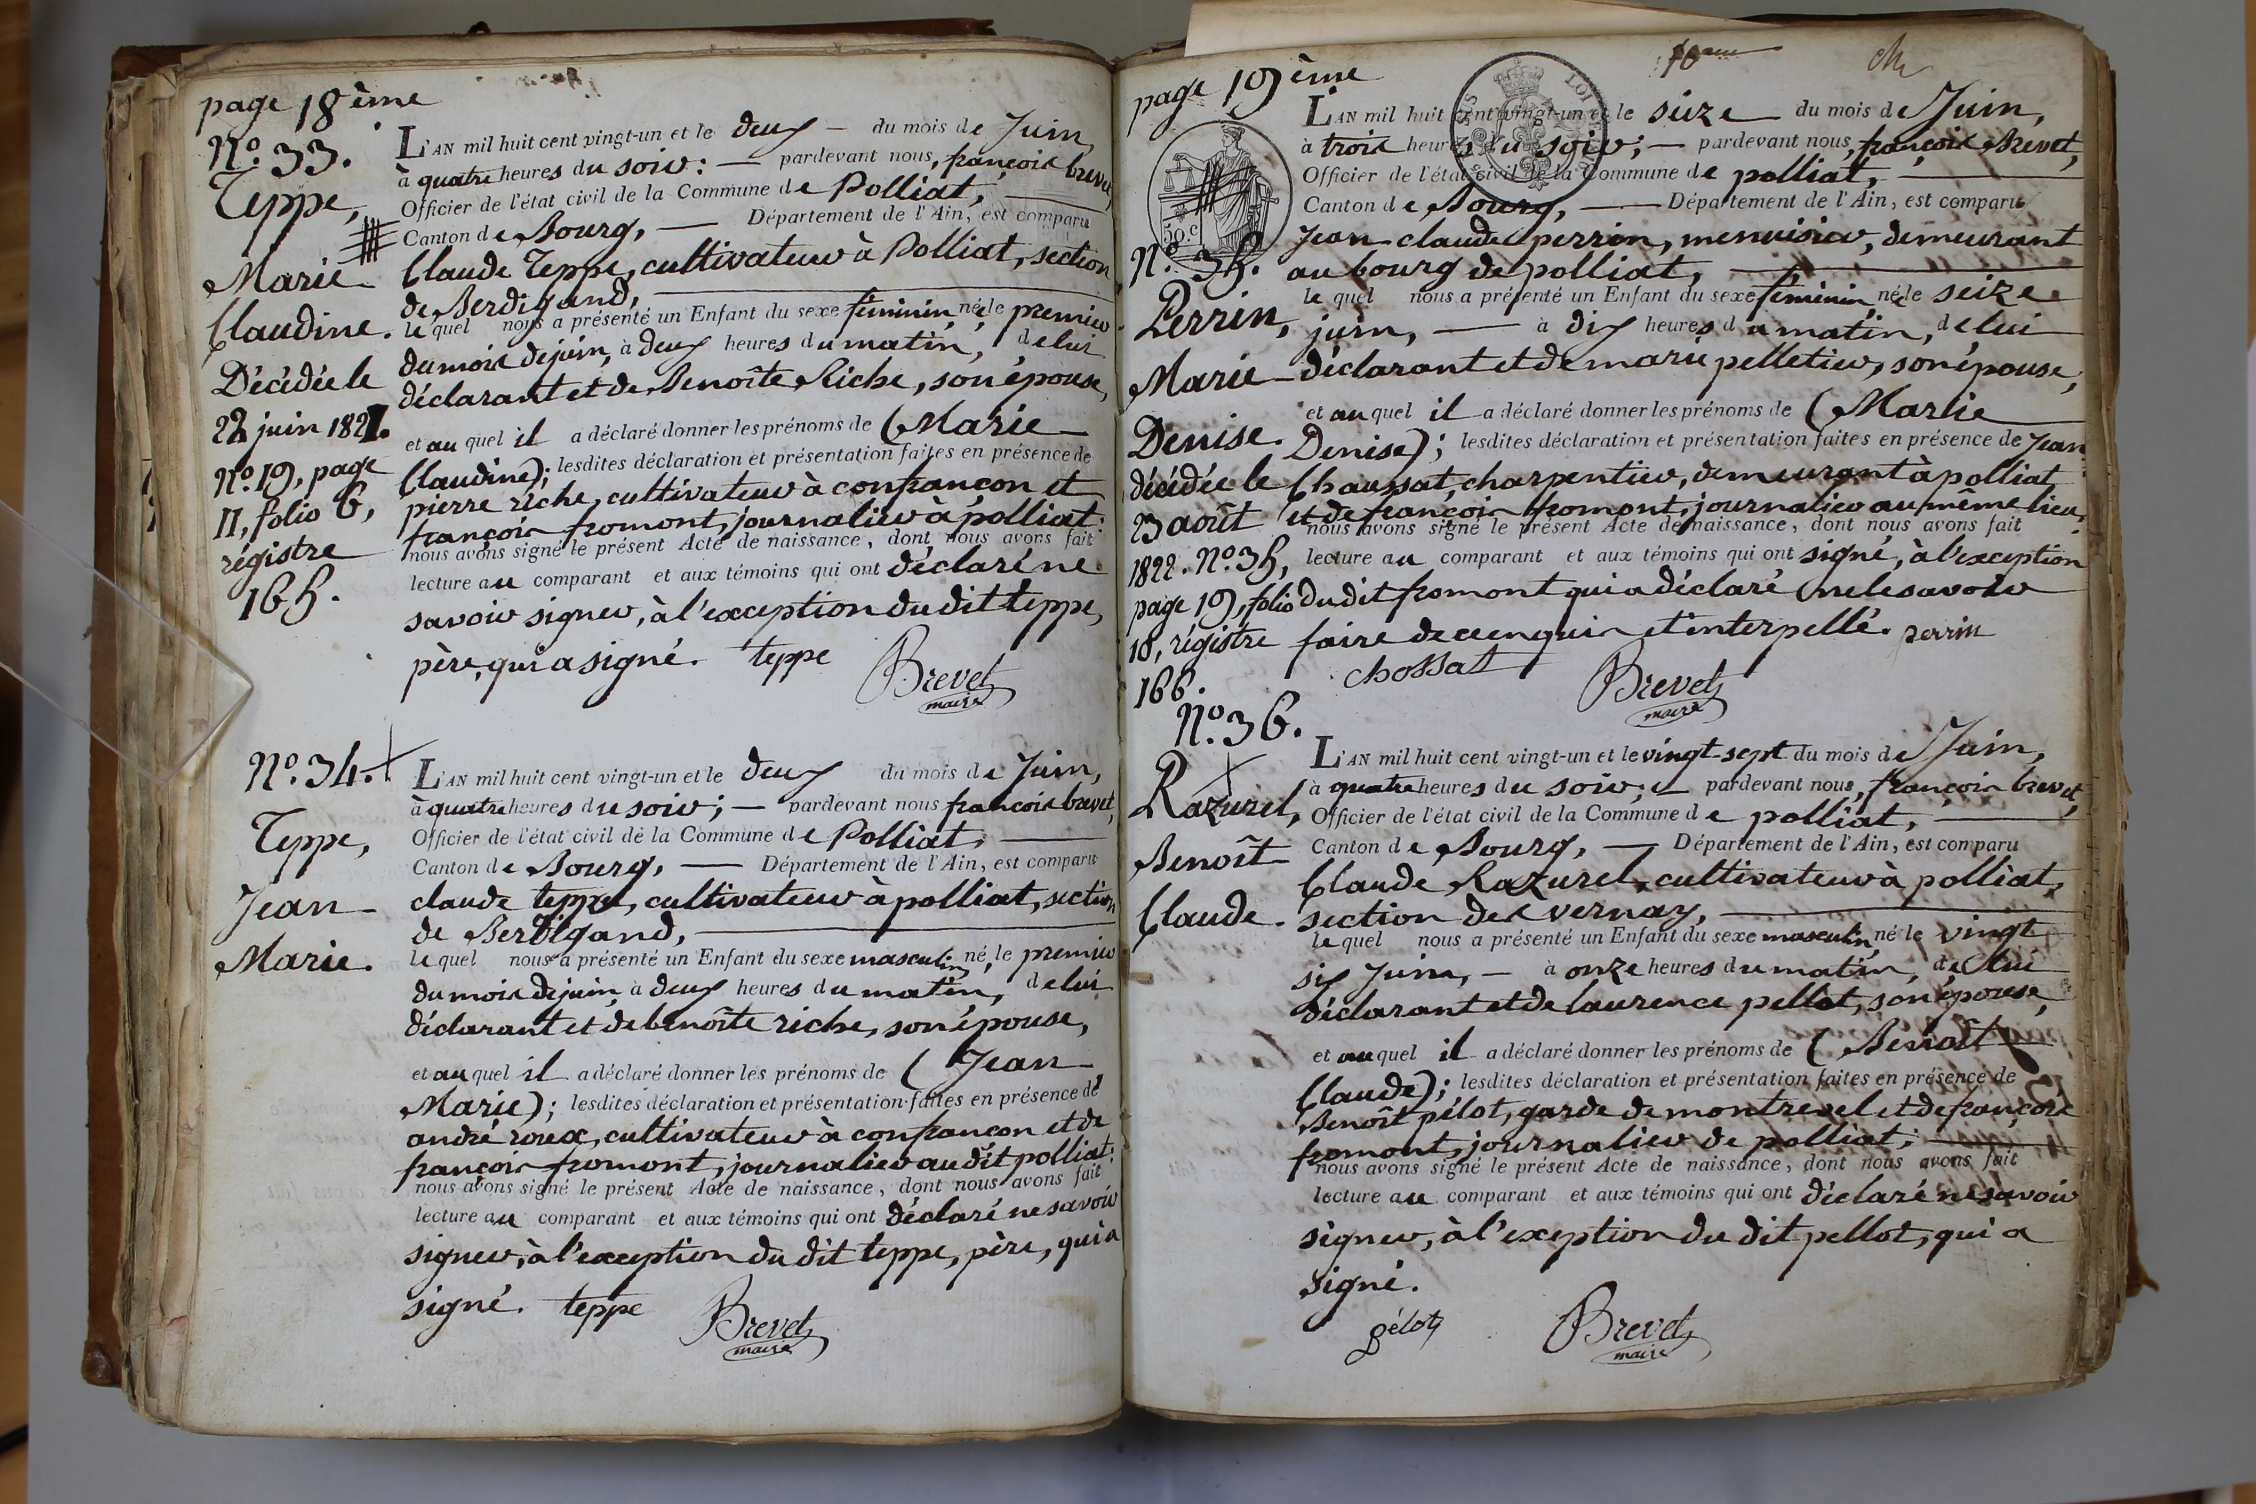 page 18ème
N.o 33.
Teppe,
Marie
Claudine.
Décédée le
22 juin 1821.
N.o 19, page
11, folio 6,
régistre
165.
L'AN mil huit cent vingt-un et le deux du mois de Juin,
à quatre heures du soir: pardevant nous, françois brevet,
Officier de l'état civil de la Commune de Polliat,
Canton de Bourg, Département de l'Ain, est comparu
Claude Teppe, cultivateur à Polliat, section
de Berdigand,
le quel nous a présenté un Enfant du sexe féminin, née le premier
du mois de juin, à deux heures du matin, de lui
déclarant et de Benoîte Riche, son épouse,
et au quel il a déclaré donner les prénoms de (Marie
Claudine); lesdites déclaration et présentation faites en présence de
pierre riche, cultivateur à confrançon et
françois fromont, journalier à polliat:
nous avons signé le présent Acte de naissance, dont nous avons fait
lecture au comparant et aux témoins qui ont déclaré ne
savoir signer, à l'exception du dit teppe,
père, qui a signé. teppe Brevet
maire
N.o 34.
Teppe,
Jean
Marie.
L'AN mil huit cent vingt-un et le deux du mois de Juin,
à quatre heures du soir; pardevant nous françois brevet,
Officier de l'état civil de la Commune de Polliat,
Canton de Bourg, Département de l'Ain, est comparu
claude teppe, cultivateur à polliat, section
de Berdigand,
le quel nous a présenté un Enfant du sexe masculin né, le premier
du mois de juin, à deux heures du matin, de lui
déclarant et de benoîte riche, son épouse,
et au quel il a déclaré donner les prénoms de (Jean
Marie); lesdites déclaration et présentation faites en présence de
andré roux, cultivateur à confrançon et de
françois fromont, journalier au dit polliat:
nous avons signé le présent Acte de naissance, dont nous avons fait
lecture au comparant et aux témoins qui ont déclaré ne savoir
signer, à l'exception du dit teppe, père, qui a
signé. teppe Brevet
maire
page 19ème
50.c
N.o 35.
Perrin,
Marie
Denise.
décédée le
23 août
1822. N.o 35,
page 19, folio
18, régistre
166.
L'AN mil huit cent vingt-un et le seize du mois de Juin,
à trois heures du soir; pardevant nous, françois Brevet,
Officier de l'état civil de la Commune de polliat,
Canton de Bourg, Département de l'Ain, est comparu
Jean claude perrin, menuisier, demeurant
au bourg de polliat,
le quel nous a présenté un Enfant du sexe féminin, née le seize
juin, à dix heures du matin, de lui
déclarant et de marie pelletier, son épouse,
et au quel il a déclaré donner les prénoms de (Marie
Denise); lesdites déclaration et présentation faites en présence de Jean
Chaussat, charpentier, demeurant à polliat,
et de françois fromont, journalier au même lieu,
nous avons signé le présent Acte de naissance, dont nous avons fait
lecture au comparant et aux témoins qui ont signé, à l'exception
du dit fromont qui a déclaré ne le savoir
faire de ce enquis et interpellé. perrin
chossat Brevet
maire
N.o 36.
Razurel,
Benoît
Claude.
L'AN mil huit cent vingt-un et le vingt-sept du mois de Juin,
à quatre heures du soir; pardevant nous, françois brevet,
Officier de l'état civil de la Commune de polliat,
Canton de Bourg, Département de l'Ain, est comparu
Claude Razurel, cultivateur à polliat,
section des vernay,
le quel nous a présenté un Enfant du sexe masculin, né le vingt
six Juin, à onze heures du matin, de lui
déclarant et de laurence pellot, son épouse,
et au quel il a déclaré donner les prénoms de (Benoît
Claude); lesdites déclaration et présentation faites en présence de
Benoît pélot, garde de montrevel et de françois
fromont, journalier de polliat;
nous avons signé le présent Acte de naissance, dont nous avons fait
lecture au comparant et aux témoins qui ont déclaré ne savoir
signer, à l'exception du dit pellot, qui a
signé.
pélot Brevet
maire